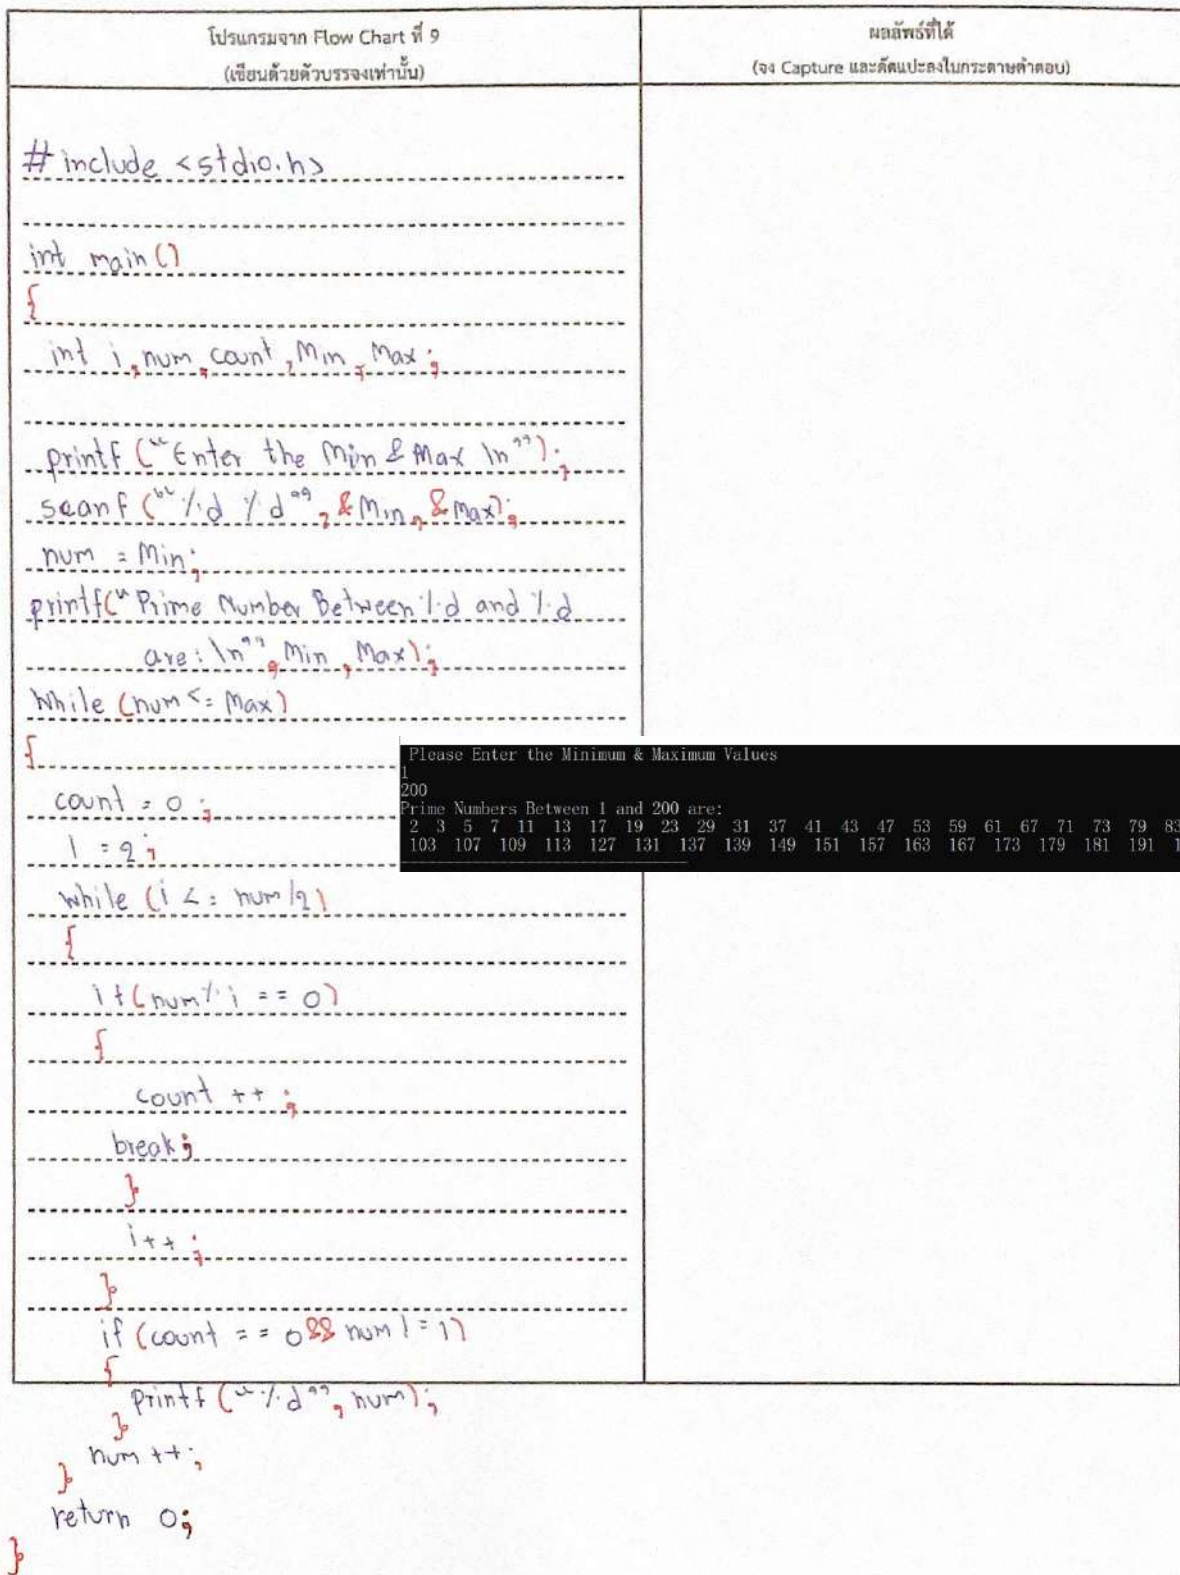 โปรแกรมจาก Flow Chart ที่ 9
(เขียนด้วยตัวบรรจงเท่านั้น)
ผลลัพธ์ที่ได้
(จง Capture และตัดแปะลงในกระดาษคำตอบ)
#include <stdio.h>
int main()
{
int i, num, count, Min, Max;
printf("Enter the Min & Max \n");
scanf("%d %d", &Min, &Max);
num = Min;
printf("Prime Number Between %d and %d
are: \n", Min, Max);
While (num <= Max)
{
count = 0;
i = 2;
while (i <= num/2)
{
if(num % i == 0)
{
count ++;
break;
}
i++;
}
if (count == 0 && num != 1)
{
printf("%d", num);
}
num ++;
}
return 0;
}
Please Enter the Minimum & Maximum Values
1
200
Prime Numbers Between 1 and 200 are:
2 3 5 7 11 13 17 19 23 29 31 37 41 43 47 53 59 61 67 71 73 79 83
103 107 109 113 127 131 137 139 149 151 157 163 167 173 179 181 191 1